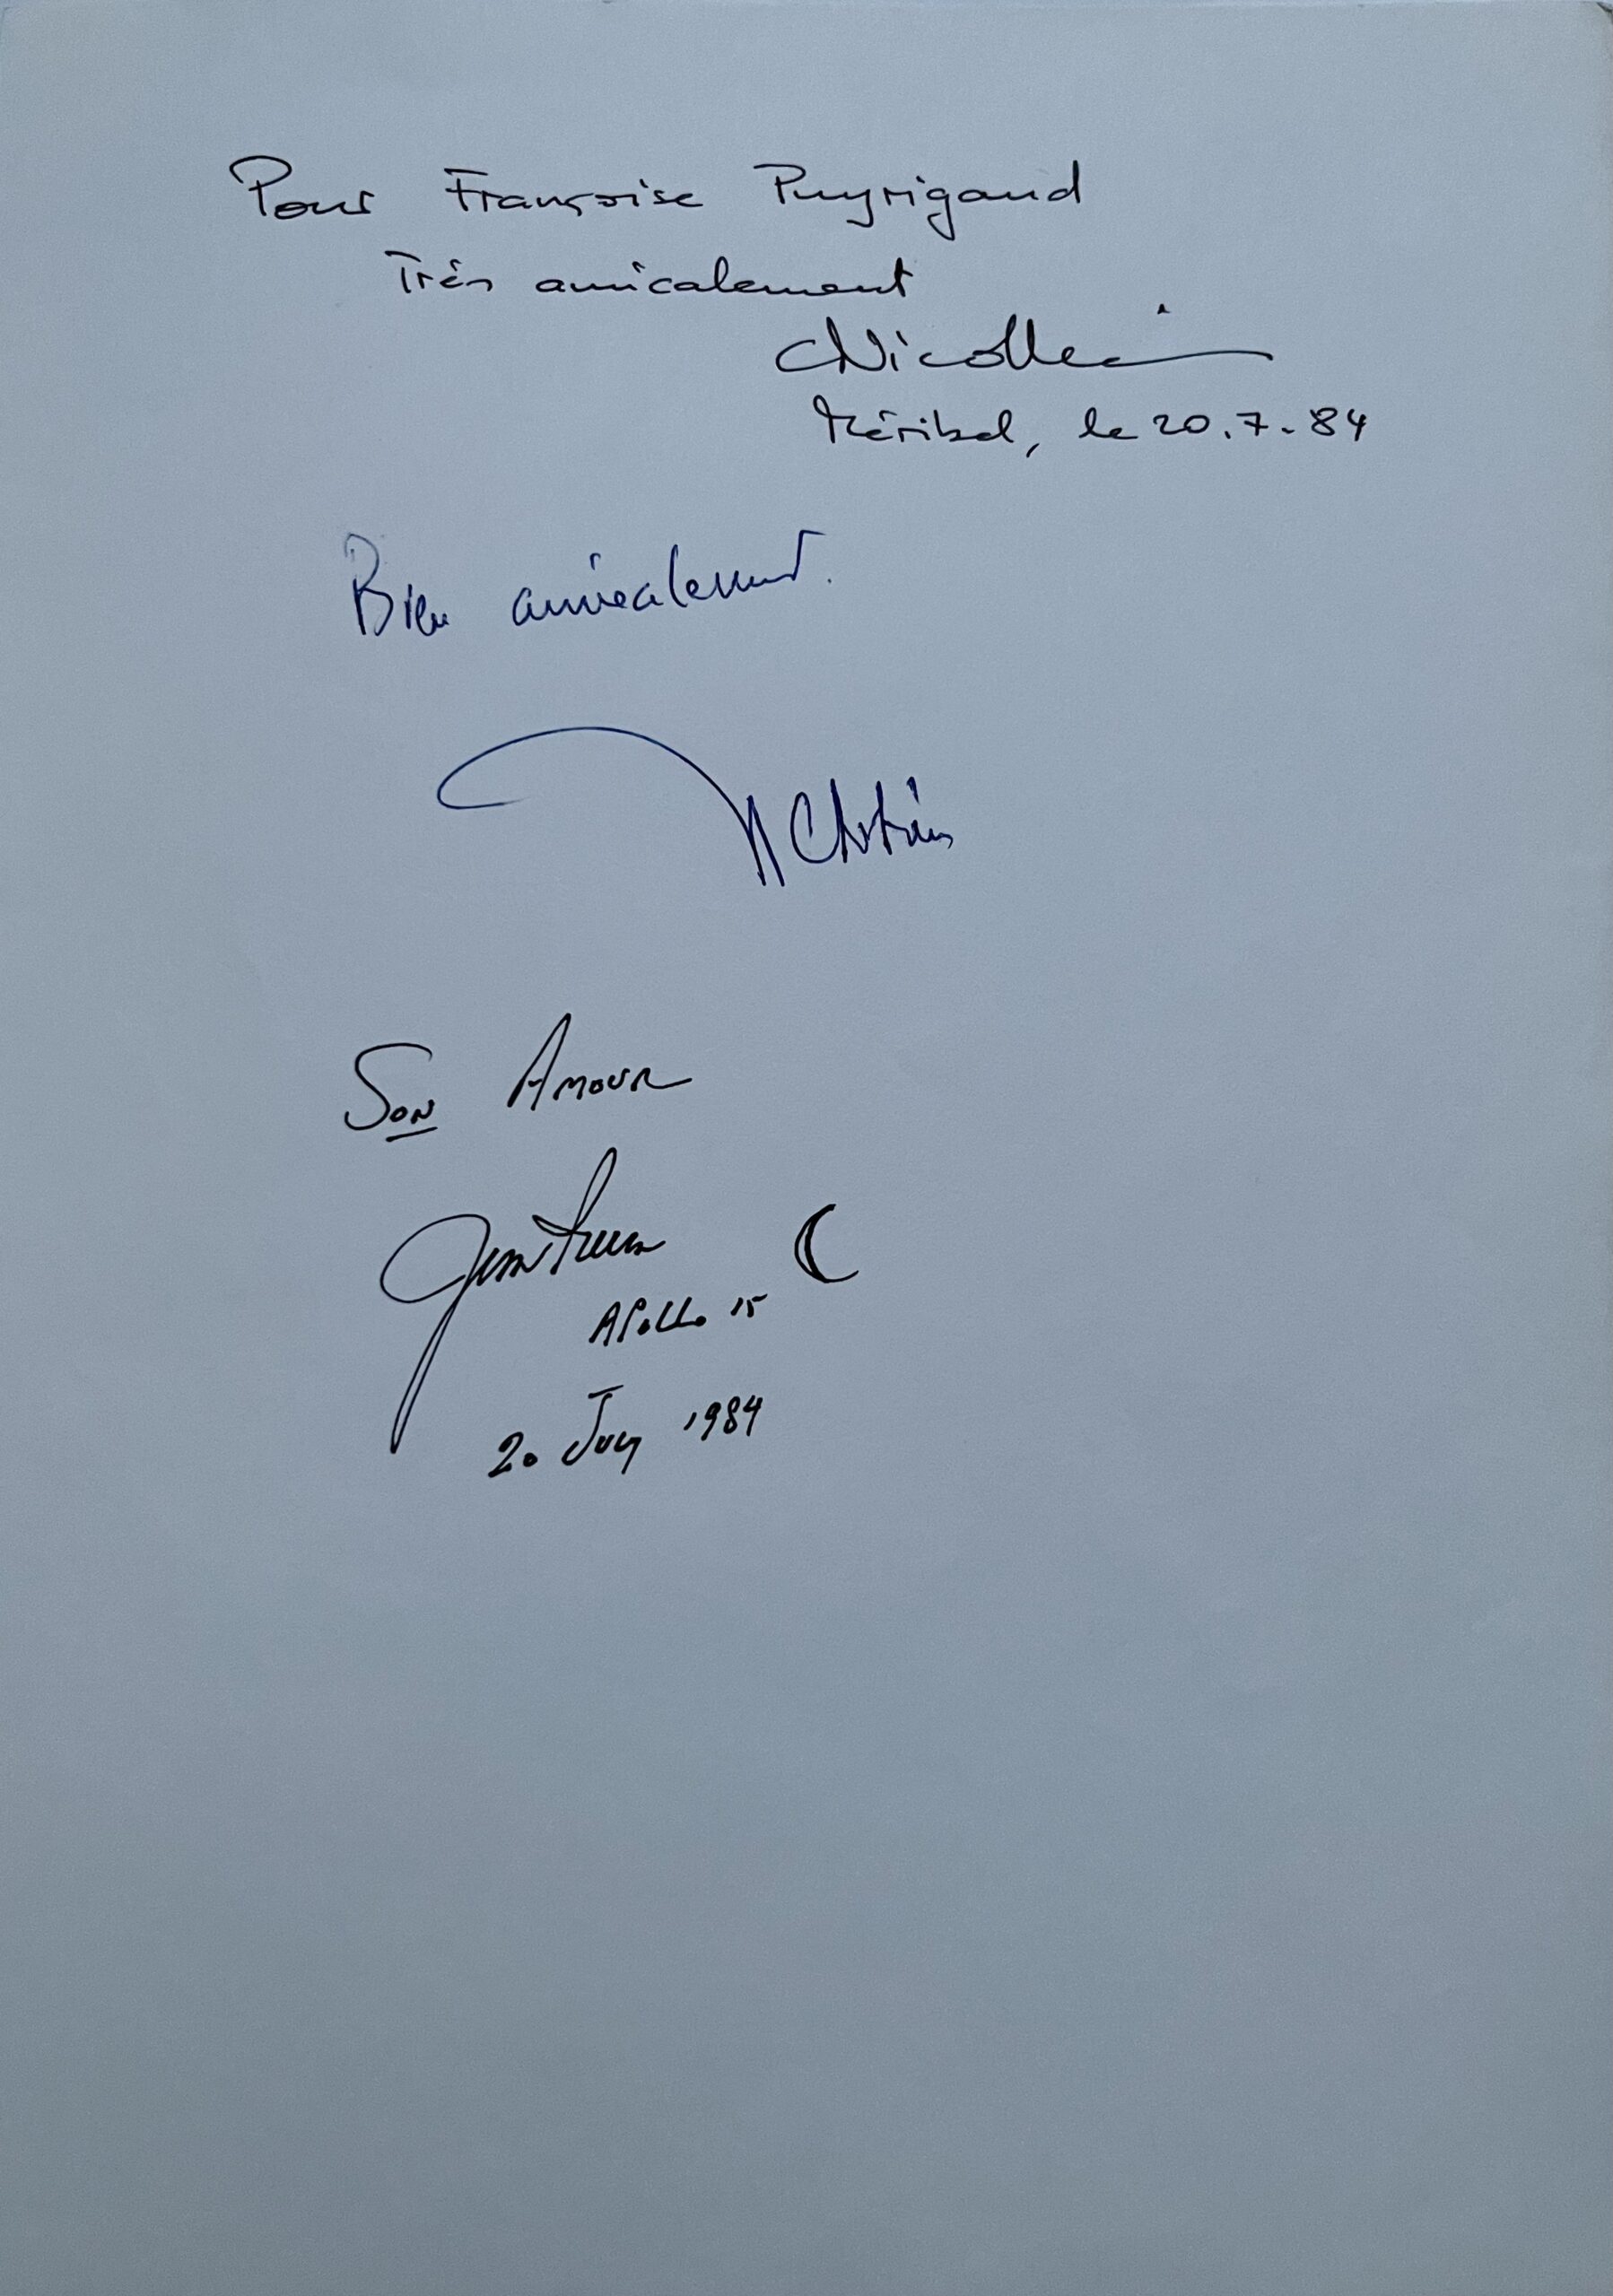 Pour Françoise Puyrigaud
Très amicalement
CNicollier
Méribel, le 20.7.84
Bien amicalement.
Son Amour
Jim Irwin
Apollo 15
20 July 1984